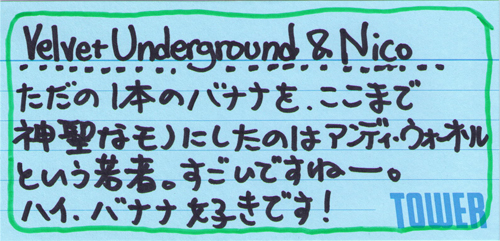 Velvet Underground & Nico
ただの1本のバナナを、ここまで
神聖なモノにしたのはアンディ・ウォホル
という若者。すごいですねー。
ハイ、バナナ好きです!
TOWER